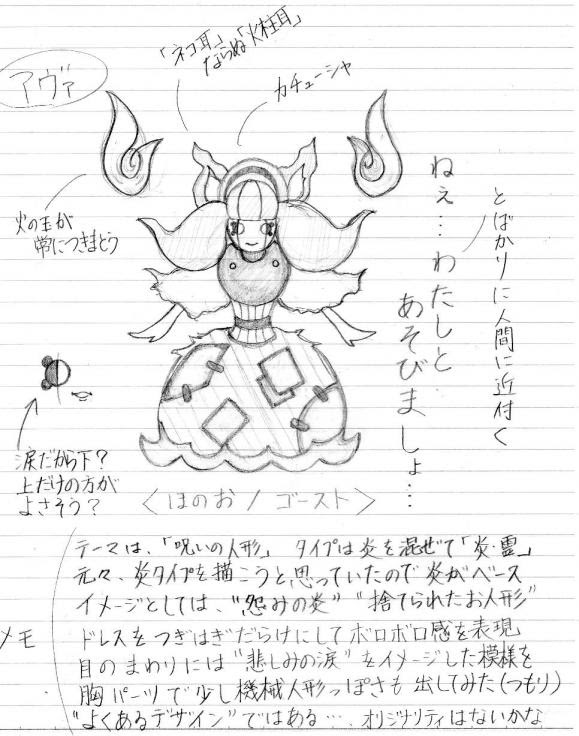 「ネコ耳」
ならぬ「火柱耳」
アヴァ
カチューシャ
火の玉が
常につきまとう
ねぇ…わたしと
あそびましょ…
とばかりに人間に近付く
涙だから下？
上だけの方が
よさそう？
＜ほのお／ゴースト＞
メモ
テーマは、「呪いの人形」 タイプは炎を混ぜて「炎・霊」
元々、炎タイプを描こうと思っていたので炎がベース
イメージとしては、“怨みの炎” “捨てられたお人形”
ドレスをつぎはぎだらけにしてボロボロ感を表現
目のまわりには“悲しみの涙”をイメージした模様を
胸パーツで少し機械人形っぽさも出してみた(つもり)
“よくあるデザイン”ではある… オリジナリティはないかな